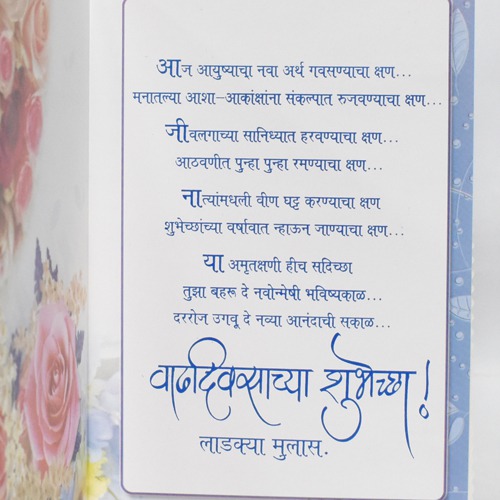 आज आयुष्याचा नवा अर्थ गवसण्याचा क्षण...
मनातल्या आशा-आकांक्षांना संकल्पात रुजवण्याचा क्षण...
जीवलगाच्या सानिध्यात हरवण्याचा क्षण...
आठवणीत पुन्हा पुन्हा रमण्याचा क्षण...
नात्यांमधली वीण घट्ट करण्याचा क्षण
शुभेच्छांच्या वर्षावात न्हाऊन जाण्याचा क्षण...
या अमृतक्षणी हीच सदिच्छा
तुझा बहरू दे नवोन्मेषी भविष्यकाळ...
दररोज उगवू दे नव्या आनंदाची सकाळ...
वाढदिवसाच्या शुभेच्छा!
लाडक्या मुलास.